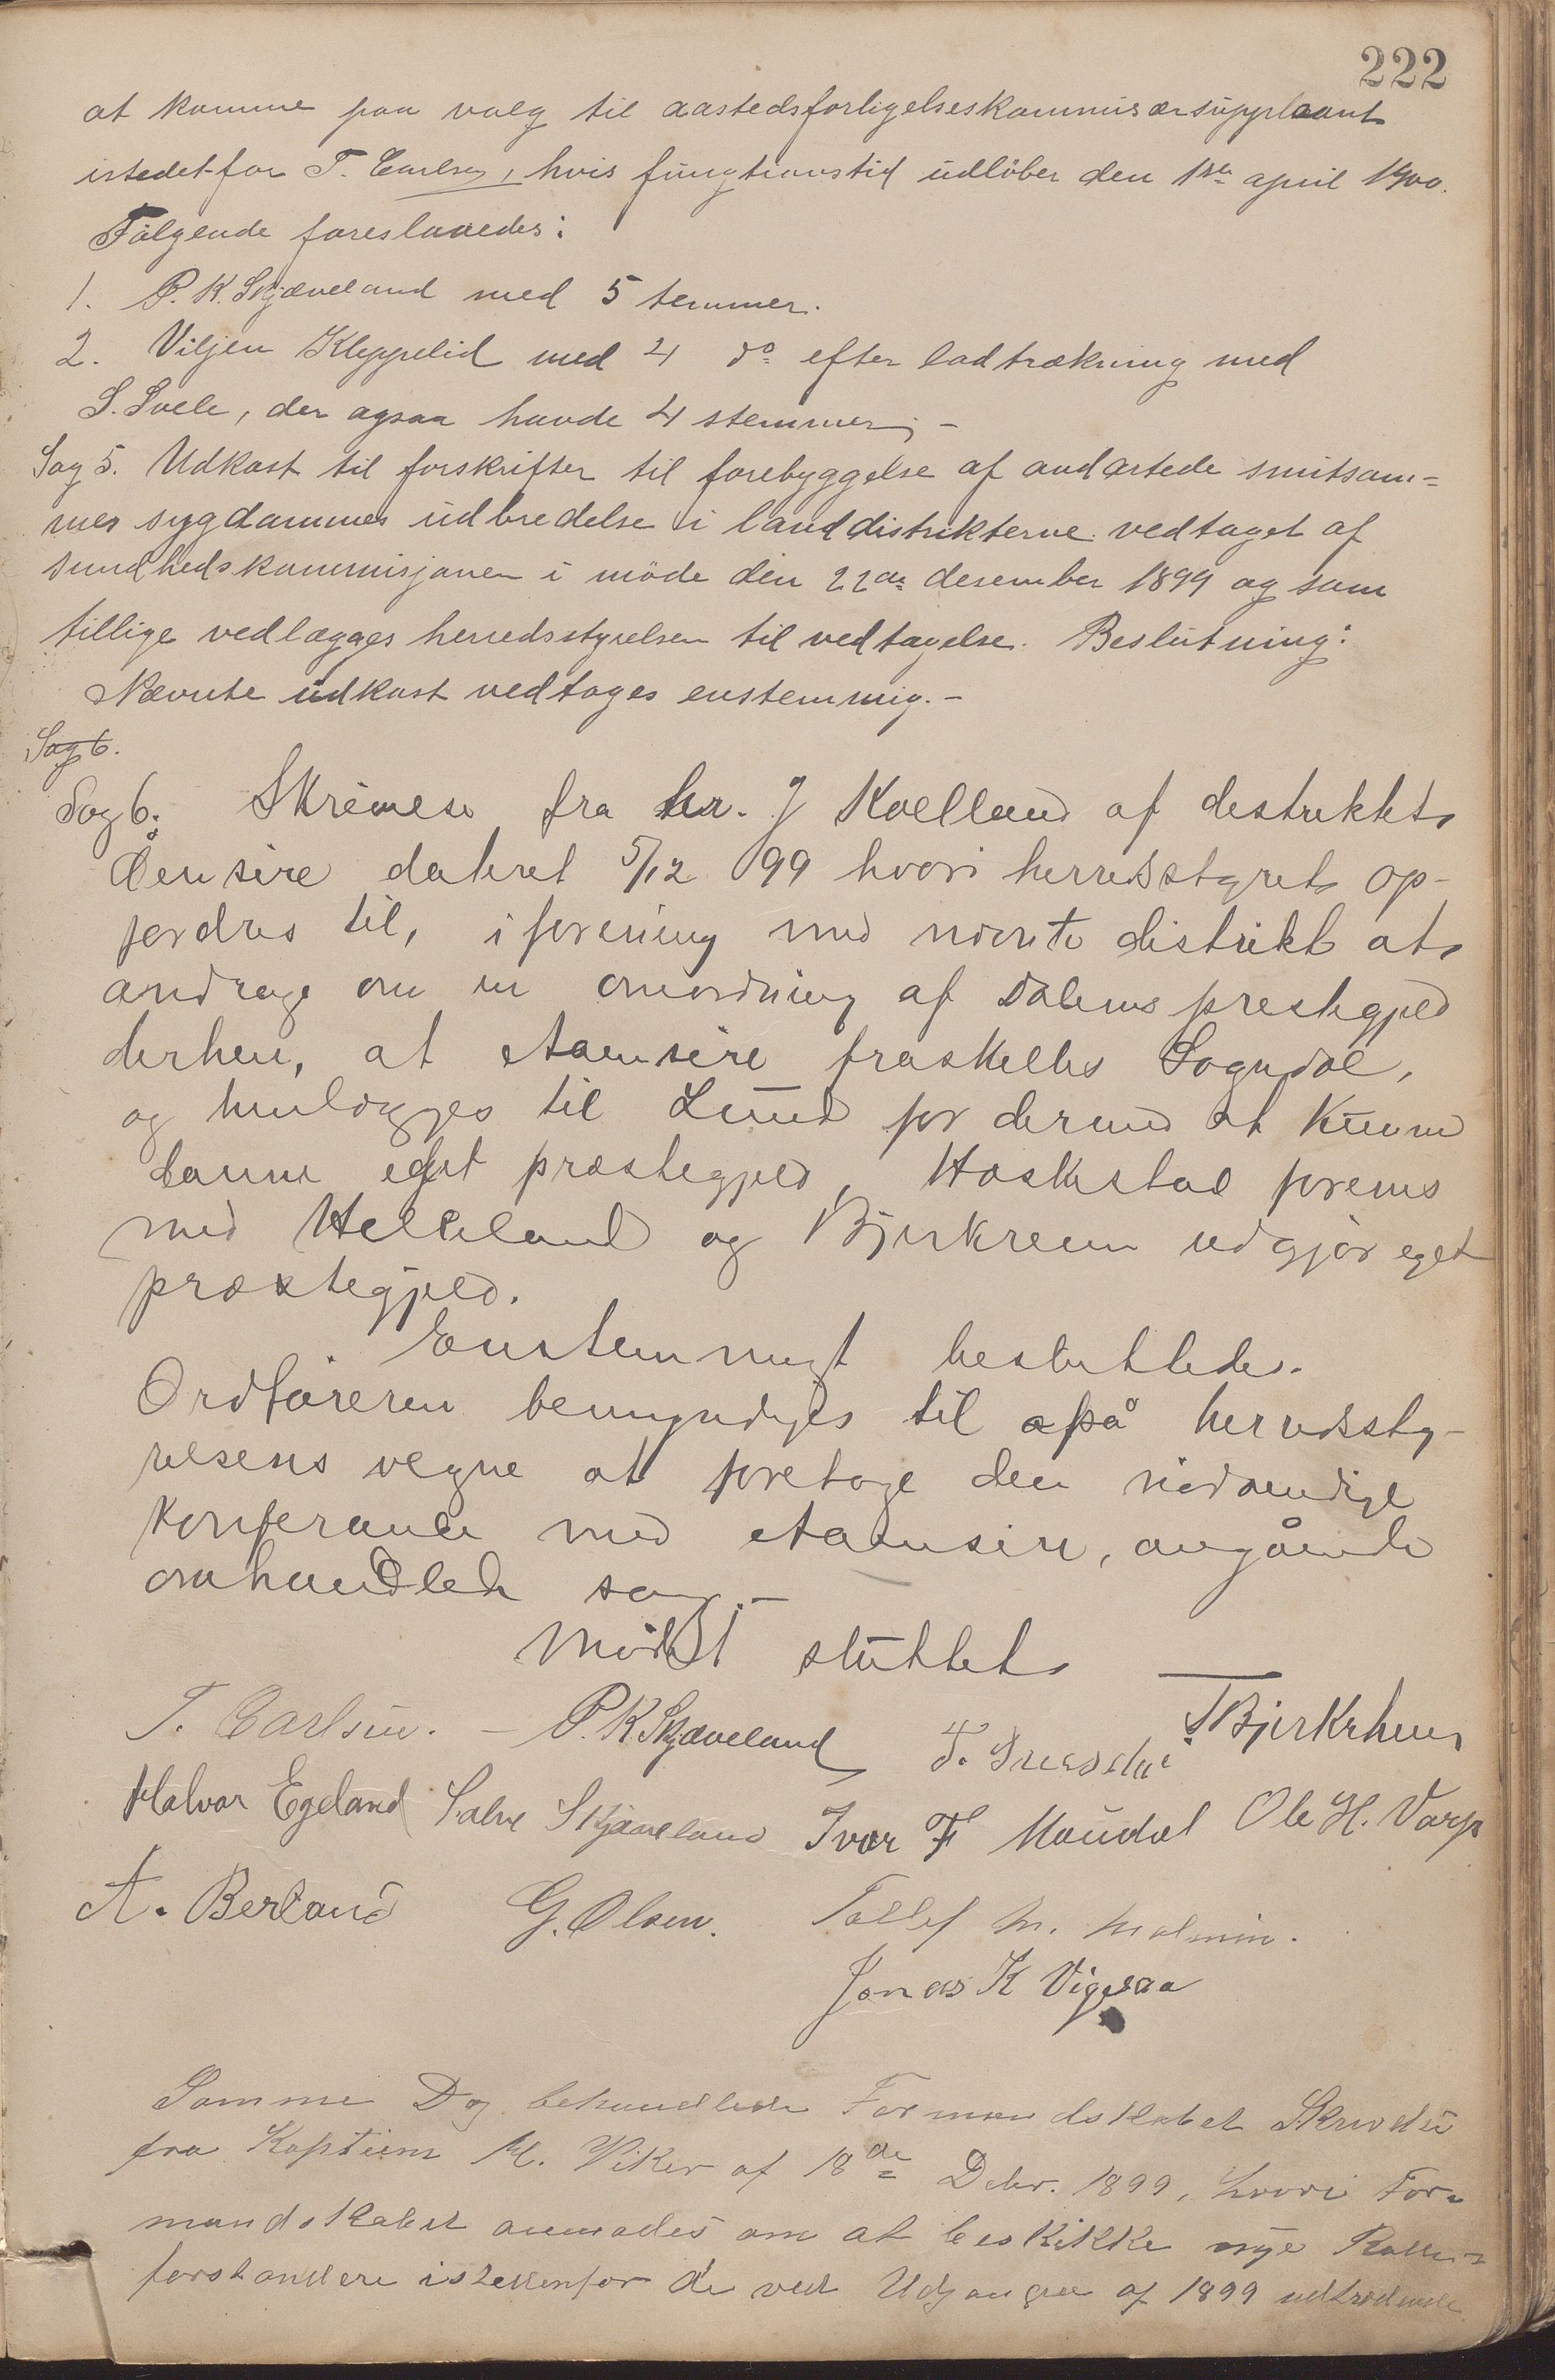 222
at komme paa valg til aastedsforligelseskommisærsuppleant
istedetfor T. Carlsen, hvis fungtionstid udløber den 1ste april 1900.
Følgende foresloaedes:
1. P. K. Skjæveland med 5 temmer.
2. Viljen Kleppelid med 4 do efter lodtrækning med
S. Svele, der ogsaa havde 4 stemmer. -
Sag 5. Udkast til forskrifter til forebyggelse af ondartede smitsom=
mes sygdommes udbredelse i landdistrikterne vedtaget af
sundhedskommisjonen i møde den 22de desember 1899 og som
tillige vedlægges herredsstyrelsen til vedtagelse. Beslutning:
Nævnte udkast vedtages enstemmig. -
Sag 6.
Sag 6. Skrivelse fra hr. J Kvelland af destriktet
Åensire dateret 5/12 99 hvori herredsstyret op-
fordres til, i forening med nævnte distrikt at
andrage om en omordning af Dalens prestegjeld
derhen, at Aaensire fraskilles Sogndal,
og henlægges til Lund for dermed at kunne
danne eget præstegjeld, Heskestad forenes
med Helleland og Bjerkreim udgjør eget
præstegjeld.
Enstemmigt besluttedes.
Ordføreren bemyndiges til på herredssty-
relsens vegne at foretage den nødvendige
konferance med Aaensire, angående
omhandlede sag. -
Mødet sluttet
T. Carlsen. - P. K Skjæveland T Bjerkrheim
Halvor Egeland Salve Skjæveland Ivar F Maudal Ole H. Varp
A. Berland G. Olsen. Tollef M. Malmin.
Jonas K Vigesaa
Samme Dag behandlede Formandskabet Skrivelse
fra Kaptein M. Viker af 18de Debr. 1899, hvori For=
mandskabet anmodes om at beskikke nye Rulle=
forstandere istedenfor de ved Udgangen af 1899 udtrædende